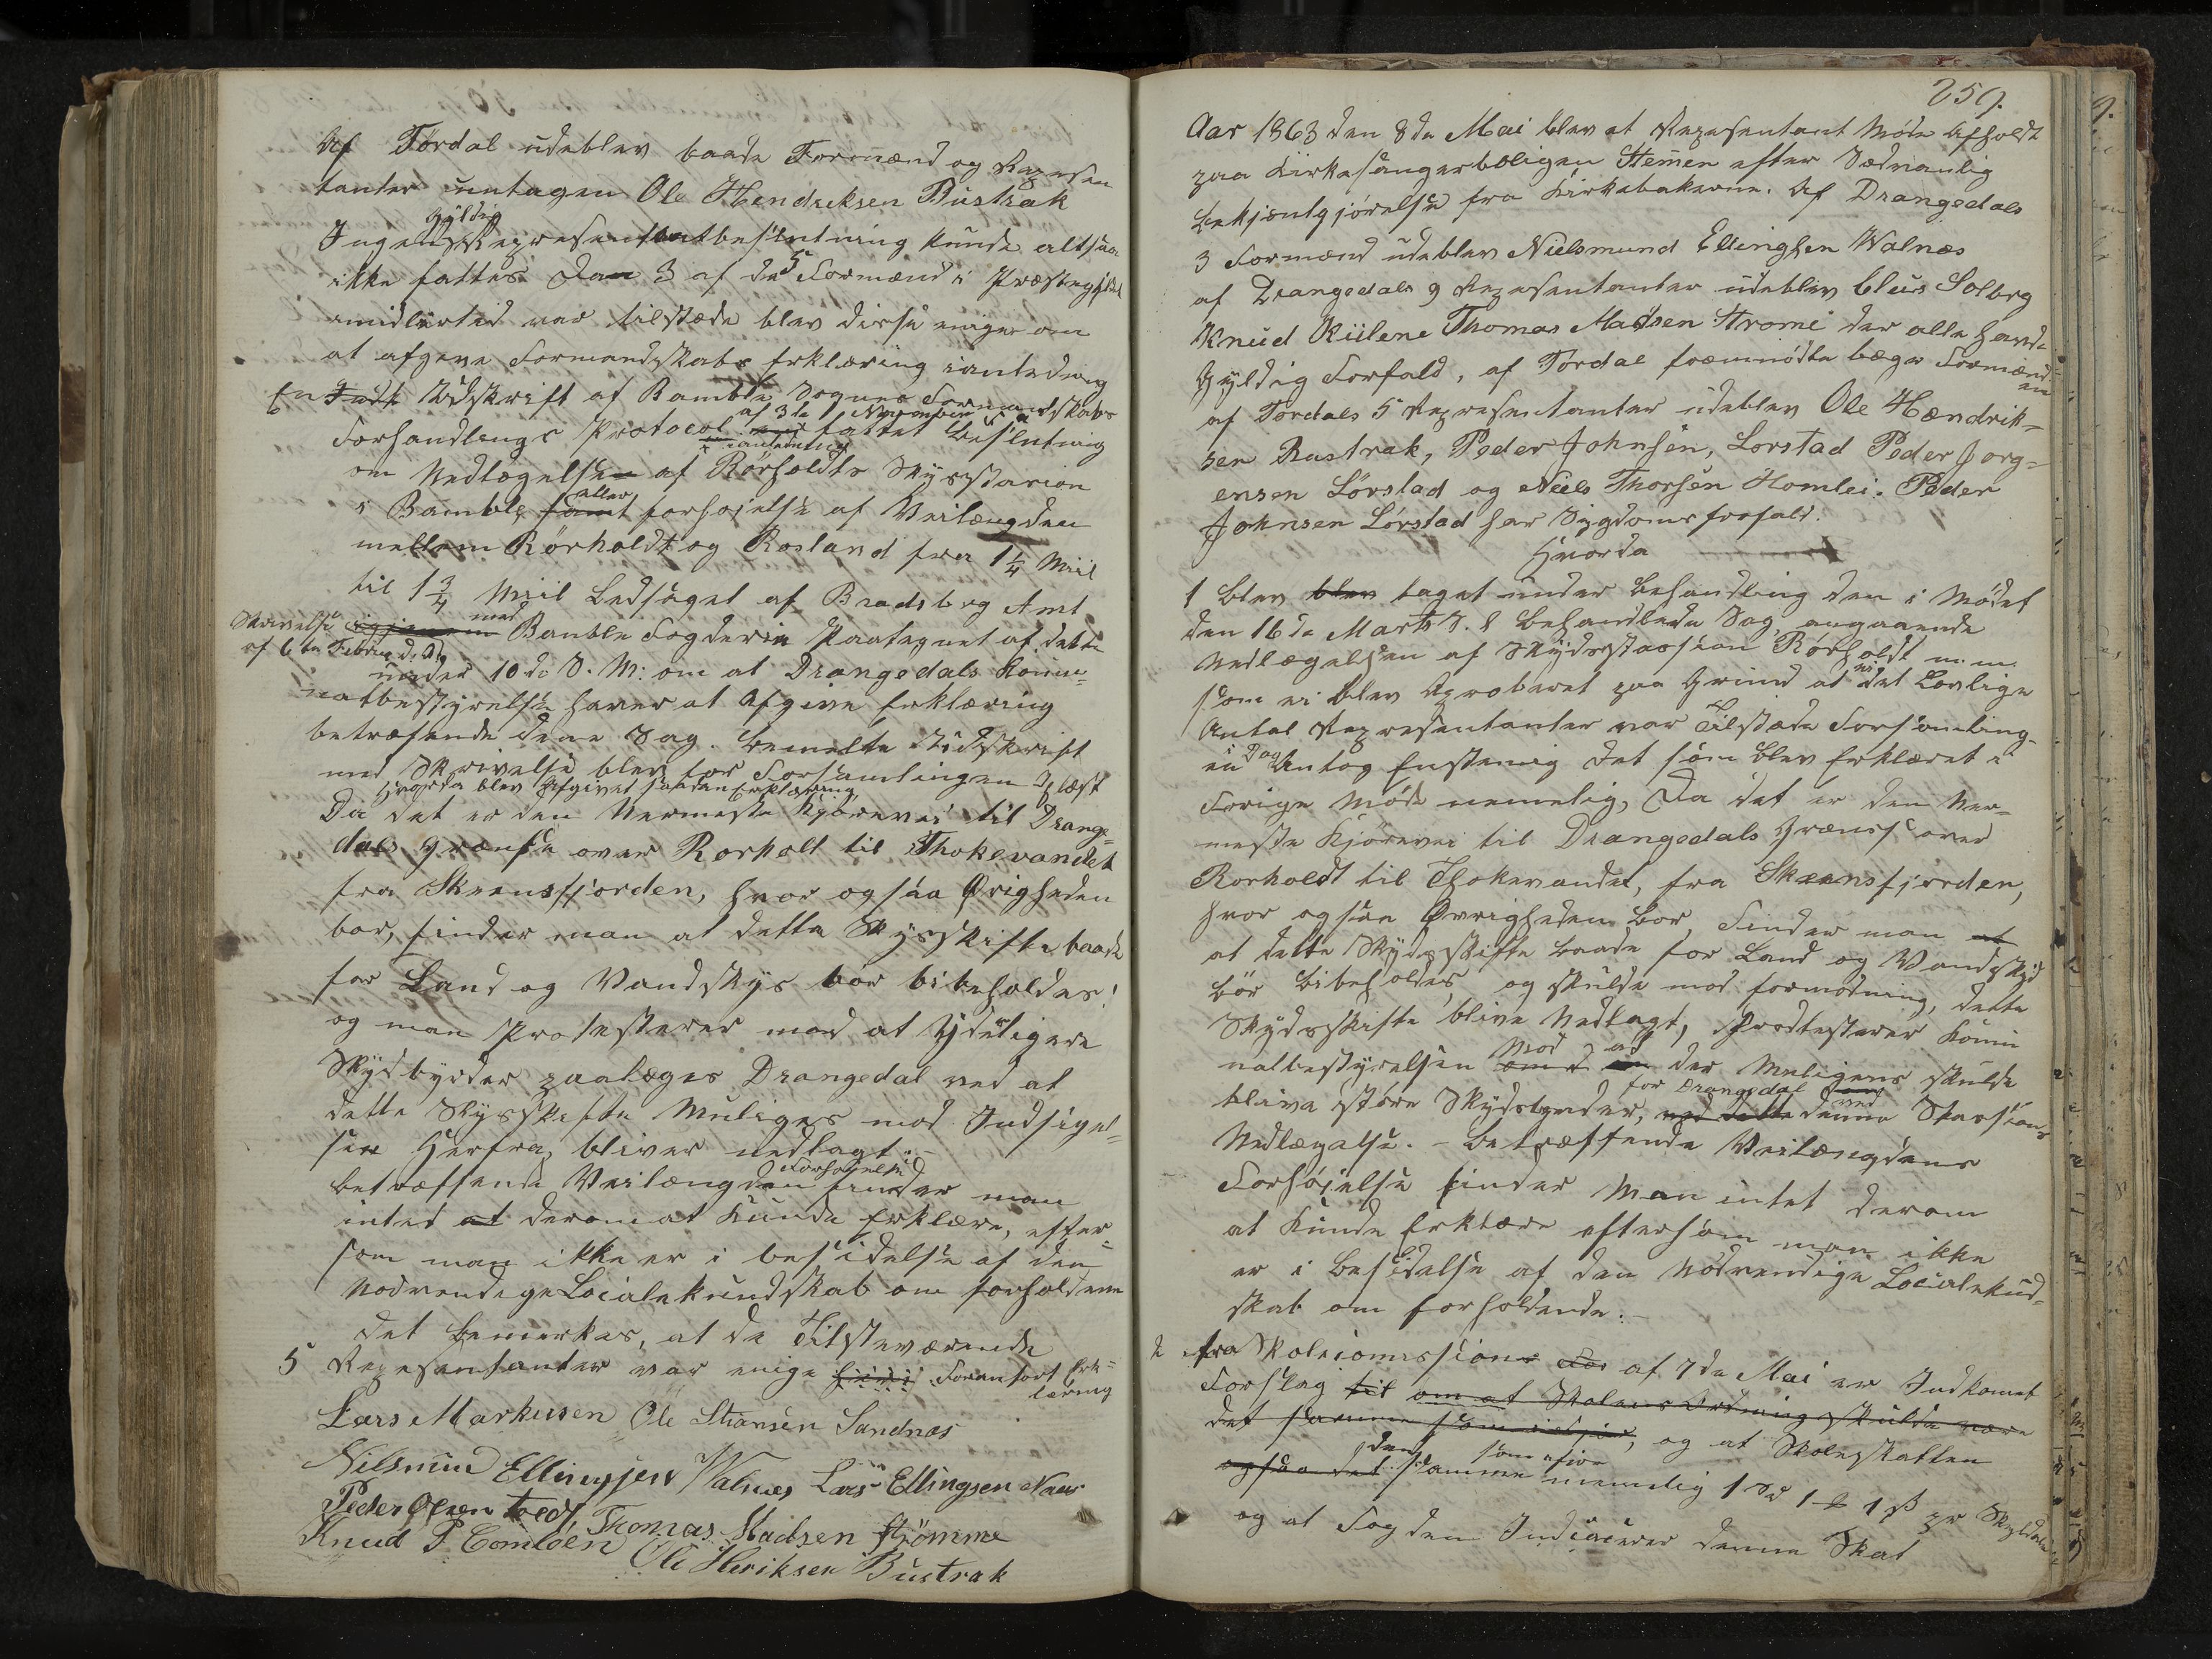 Af Tørdal udeblev baade Formænd og Repræsen
tanter undtagen Ole Hendreksen Bustrak
gyldig
Ingen Represententbeslutning kunde altsaa
ikke fattes. Da 3 af de 5 Formænd i Præstegjeldet
imidlertid var tilstæde blev disse enige om
at afgive Formandskabs Erklæring ianledning
En Udskrift af Bamble Sognes Formandskabs
af 3de November
Forhandlings Protocol fattet Beslutning
ianledning
om Nedlægelsen af Rørholdts Skysstasion
eller
i Bamble samt forhøielse af Veilængden
mellem Rörholdt og Rosland fra 1 1/4 Miil
til 1 3/4 Miil Ledsaget af Bradsberg Amt
Skrivelse igjennem med Bamble Fogderie Paategnet af dette
af 6te Februar d. A.
under 10de d. M. om at Drangedals Kom̄u=
nalbestyrelse haver at Afgive Erklæring
betræfende dene Sag. Bemelte Udskrift
med Skrivelse blev for Forsamlingen Oplæst
hvorda blev Afgivet saadan Erklæring
Da det er den Nermeste Kjørevei til Drange=
dals Grænse over Rorholt til Thokevandet
fra Skeensfjorden, hvor ogsaa Øvrigheden
bor, finder man at dette Skysskifte baade
for Land og Vandskys bør bibeholdes!
og man Protesterer mod at Yderligere
Skydsbyrder paalæges Drangedal ved at
dette Skysskifte Muliges mod Indsigel=
sen Herfra, bliver nedlagt.-
Forhøielse
betræffende Veilængden finder man
intet at derom at kunde Erklære, efter=
som man ikke er i besidelse af den
Nodvendige Localekundskab om forholdene
det bemerkes, at de Tilsteværende
5 Representanter var enige Foranført Erk=
læring
Lars Markussen Ole Stiansen Sandnæs
Nilsmun Ellingsen Walnæs Lars Ellingsen Næs
Peder Olsen Thomas Madsen Strömme
Knud P.
Ole Heriksen Bustrak
259.
Aar 1863 den 8de Mai blev et Representant Møde Afholdt
paa Kirkesangerboligen Stemen efter Sædvanlig
Bekjentgjørelse fra Kirkebakerne. Af Drangedals
3 Formænd udeblev Nielsmund Ellingsen Walnæs
af Drangedals 9 Representanter udeblev Cleus Solberg
Knud Kiilene Thomas Madsen Strøme der alle havde
Gyldig Forfald, af Tørdal fremmødte begge Formænd
ene
af Tørdals 5 Representanter udeblev Ole Hændrik=
sen Bustrak, Peder Johnsen, Lorstad Peder Jorg=
ensen Lörstad og Niels Thorsen Homlei. Peder
Johnsen Lörstad har Sygdoms forfald.
Hvorda
1 Blev blev taget under Behandling den i Mødet
den 16de Marts § 1 Behandlede Sag, angaaende
Nedlægelsen af Skydsstassion Rörholdt m. m.
som ei blev Aproberet paa Grund at det Lovlige
Antal Representanter var Tilstæde Forsamling-
en i Dag Antog Enstemig det som blev Erklæret i
Forige Møde nemelig, Da det er den Ner=
meste Kjørevei til Drangedals Grænse over
Rorholdt til Thokevandet, fra Skeensfjorden,
hvor ogsaa Øvrigheden bor, Finder man at
at dette Skydsskifte baade for Land og Vandskyds
bör bibeholdes og skulde mod formodning, dette
Skydsskifte blive Nedlagt, Prodtesterer Kom̄u
nalbestyrelsen mod at der Muligens skulde
for Drangedal ved
blive störe Skydsbyrder, ved dette denne Stassions
Nedlægelse. - Betræffende Veilængdens
Forhøielse finder Man intet derom
at kunde Erklære eftersom man ikke
er i Besidelse af den Nödvendige Localekund=
skab om forholdende.-
2 fra Skolecomissions af 7de Mai er Indkomet
Forslag til om at Skolens Ordning skulde være
det samme , og at Skoleskatten
den som ifior
ogsaa det samme nemelig 1 ß pr Skylddaler
og at Fogden Indcaserer denne Skat